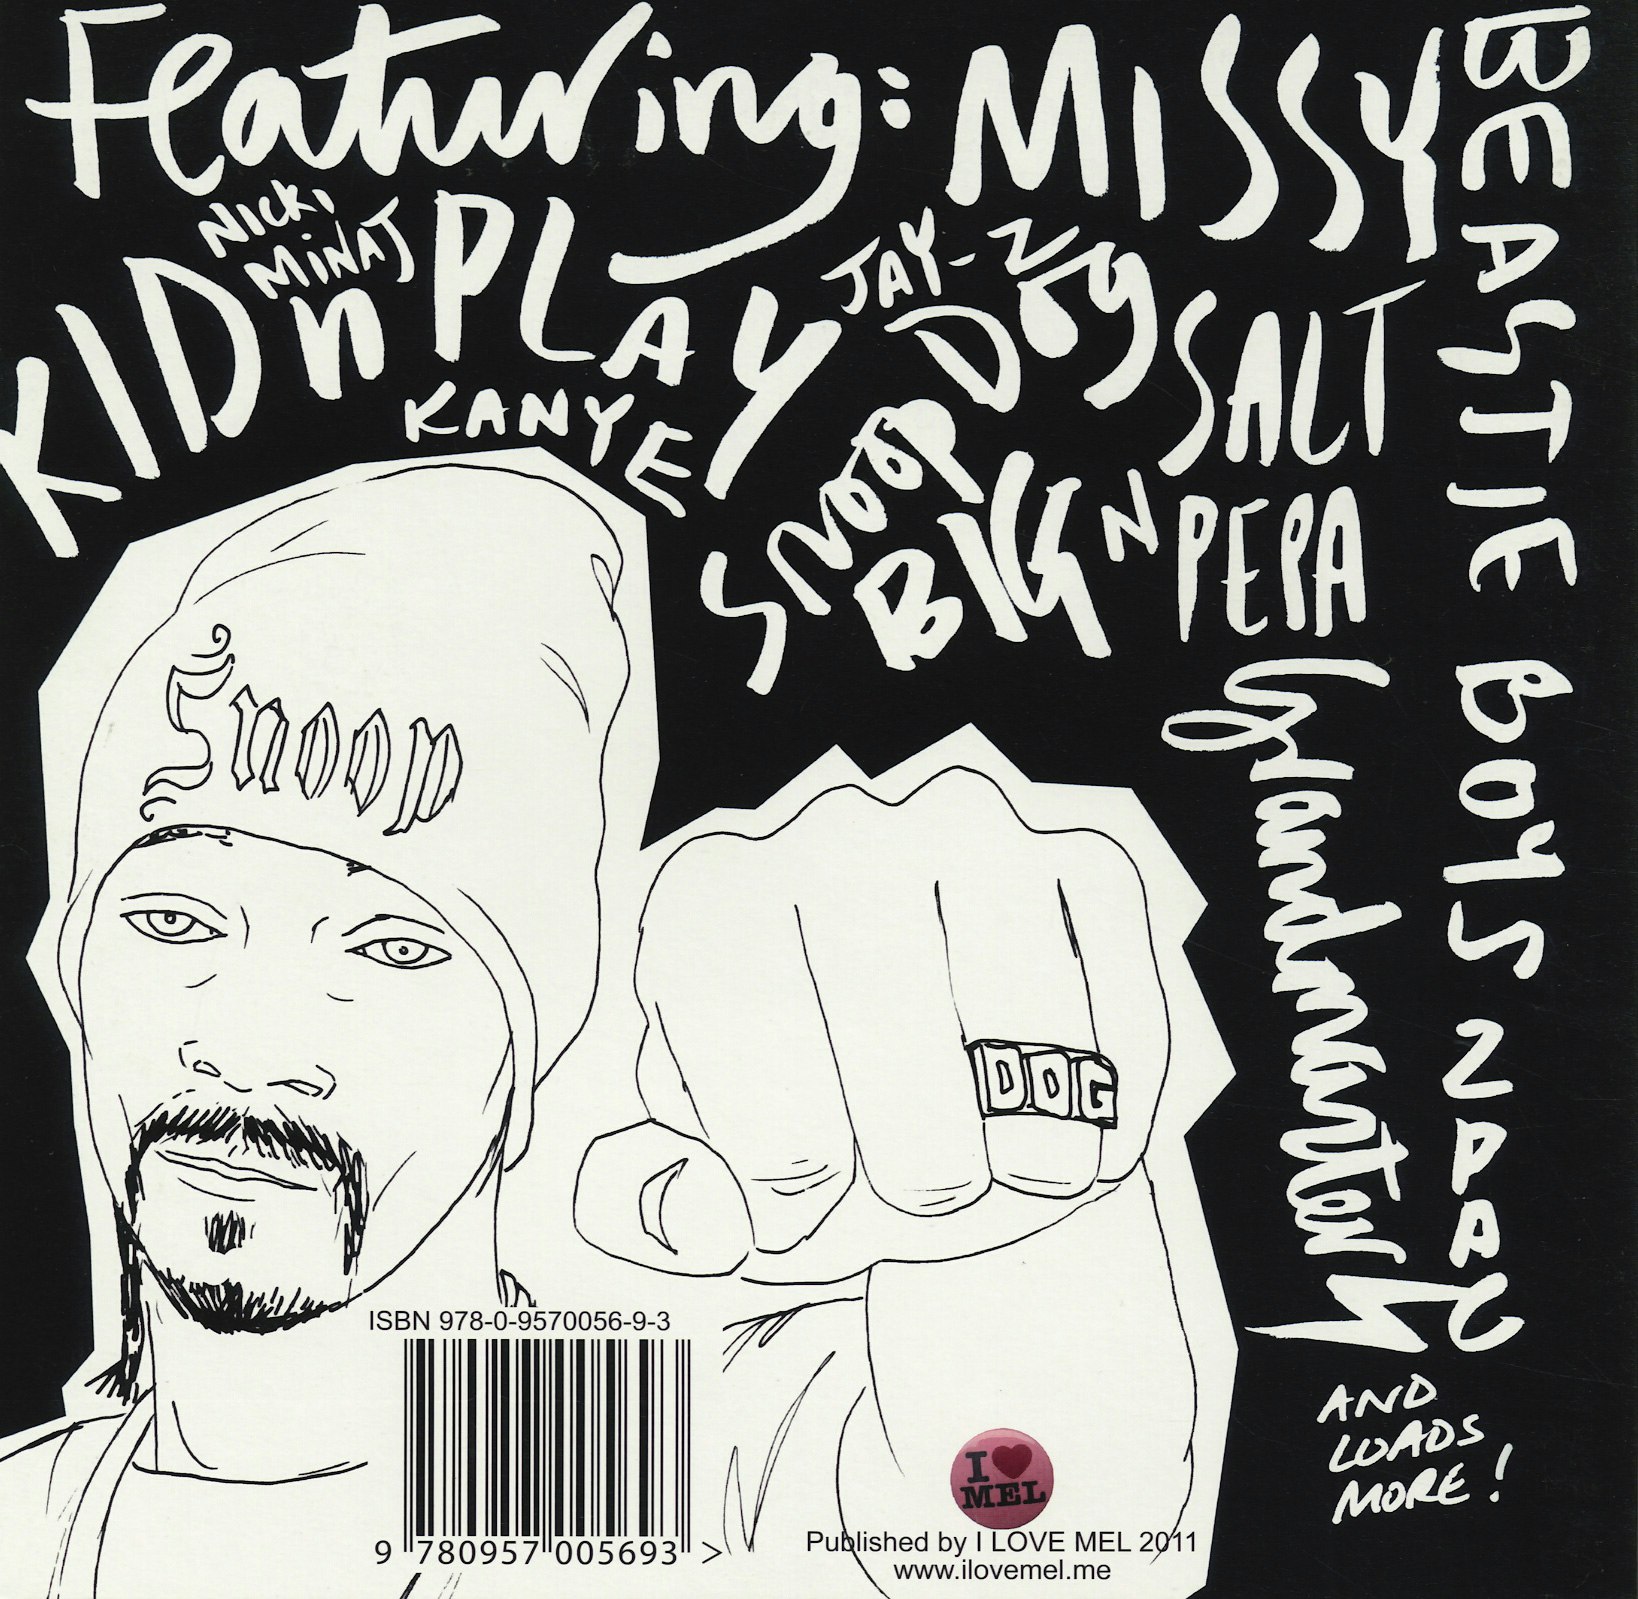 Featuring:
MISSY
NICKI
MiNAJ
KID n PLAY
KANYE
JAY-Z
SNOOP DOGG
BIG
SALT
N PEPA
BEASTIE BOYS
2PAC
Grandmaster
AND
LOADS
MORE!
Snoop
DOG
ISBN 978-0-9570056-9-3
9 780957 005693 >
I ♥
MEL
Published by I LOVE MEL 2011
www.ilovemel.me